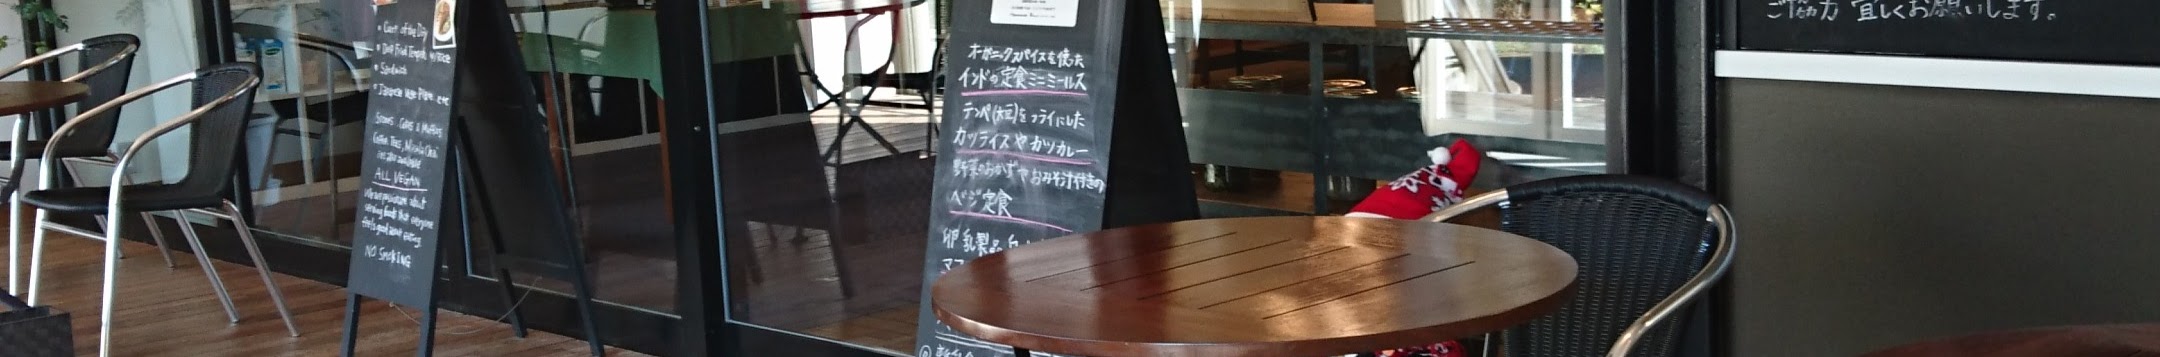 • Curry of the Day
• Deep Fried Tempeh w/ Rice
• Sandwich
• Japanese Vege Plate etc
Scones, Cakes & Muffins
Coffee, Teas, Masala Chai
is also available
ALL VEGAN
We are passionate about
serving foods that everyone
feels good about eating
NO SMOKING
オーガニックスパイスを使った
インドの定食ミニミールス
テンペ(大豆)をフライにした
カツライスやカツカレー
野菜のおかずやおみそ汁付きの
ベジ定食
卵 乳製品
ご協力 宜しくお願いします。